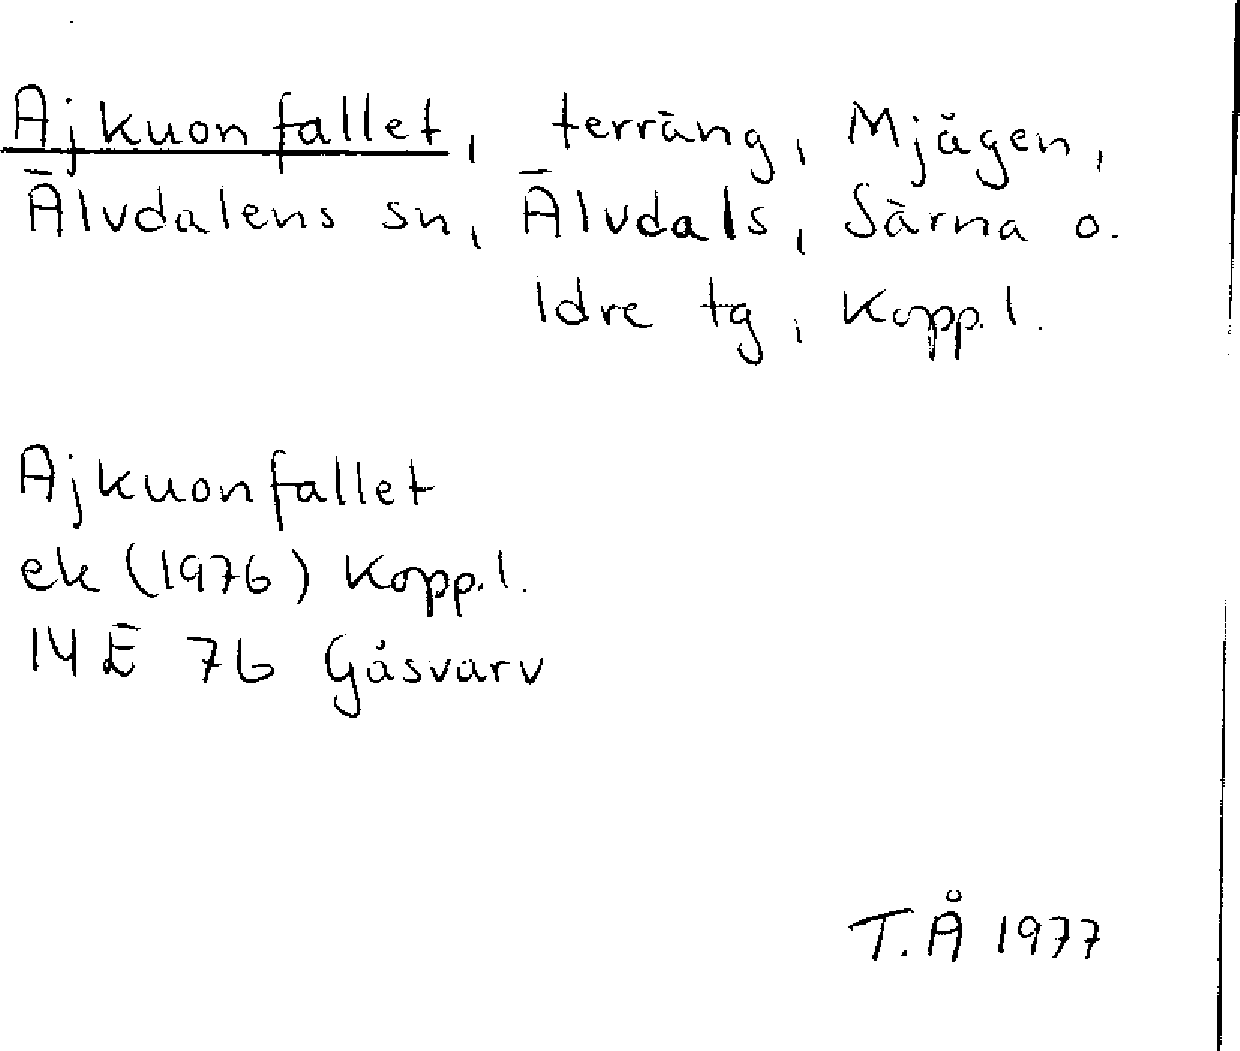 Ajkuonfallet, terräng, Mjågen,
Älvdalens sn, Älvdals, Särna o.
Idre tg, Kopp.l.
Ajkuonfallet
ek (1976) Kopp.l.
14 E 7b Gåsvarv
T.Å 1977